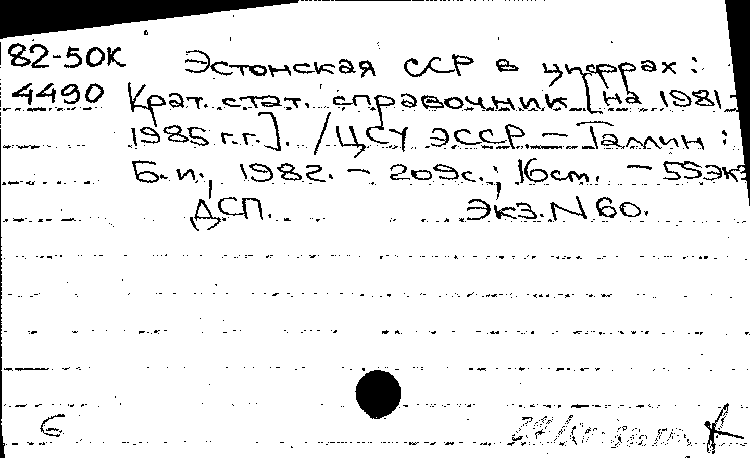 82-50К Эстонская ССР в цифрах:
4490 Крат. стат. справочник [на 1981-
1985 г.г.]. /ЦСУ ЭССР. – Таллин:
Б.и., 1982. – 209с.; 16см. – 55экз
ДСП. Экз. N 60.
6